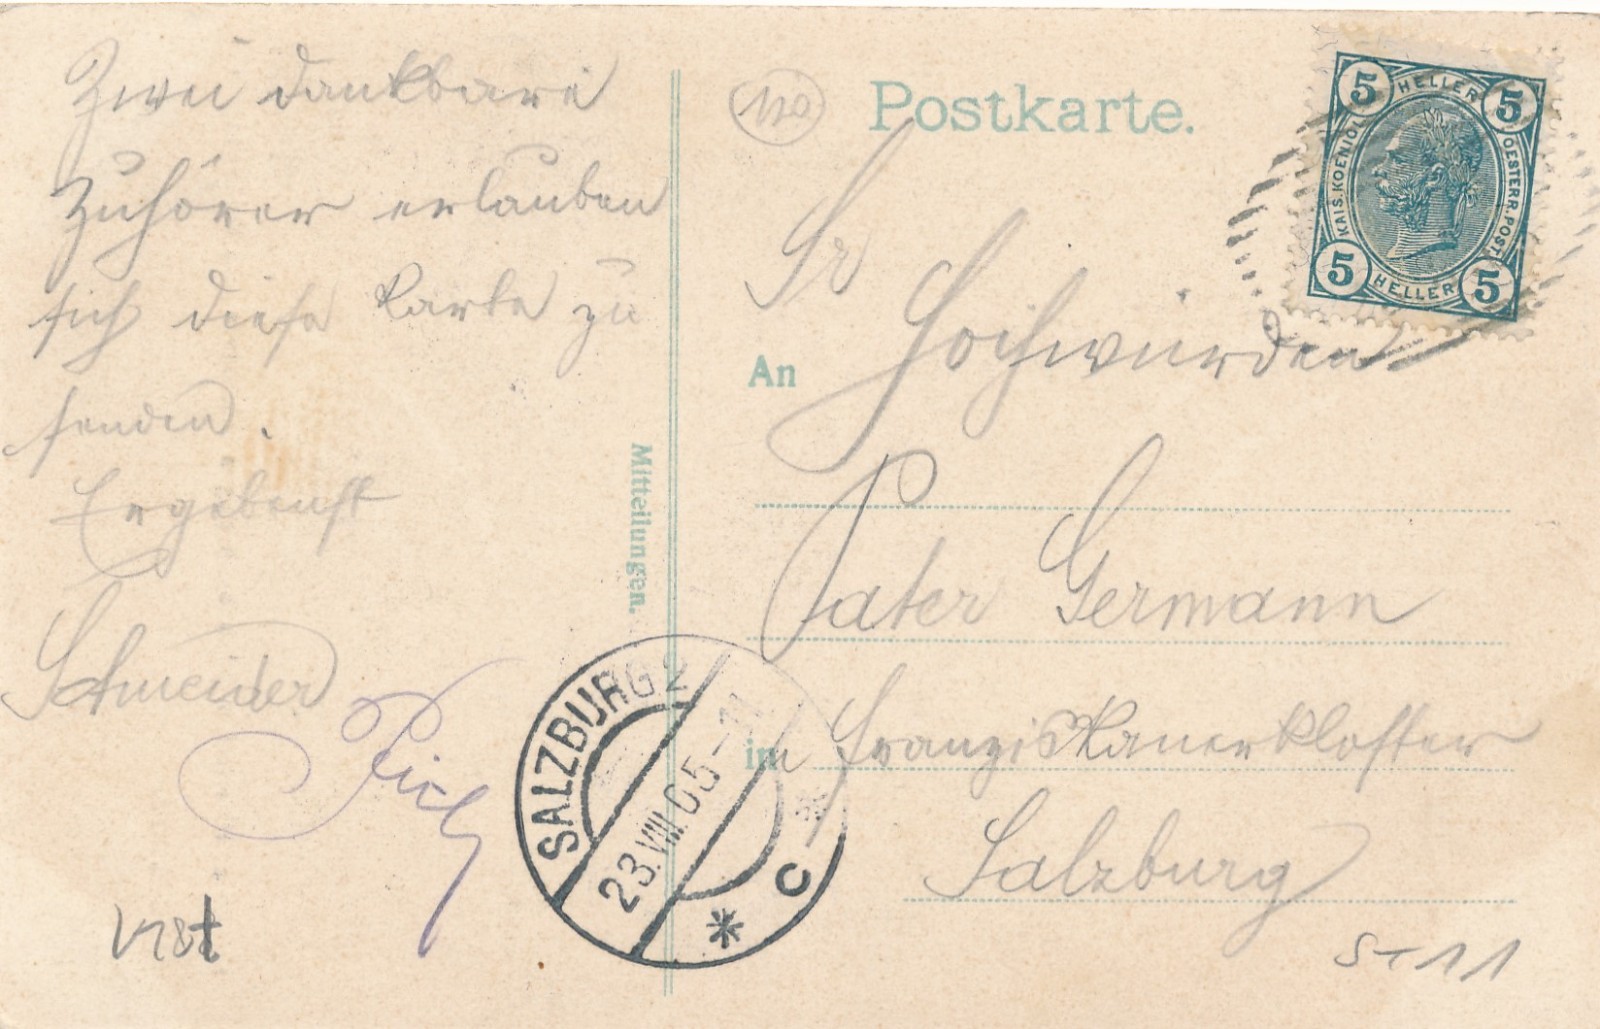 Zwei dankbare
Zuhörer erlauben
sich diese Karte zu
senden.
Ergebenst
Schneider
Mitteilungen.
Postkarte.
5 HELLER 5
KAIS. KOENIGL. OESTERR. POST.
5 HELLER 5
Sr
Hochwürden
An
Pater Germann
in Franziskanerkloster
Salzburg
SALZBURG 2
23.VIII.05-11
* C *
120
ST 11